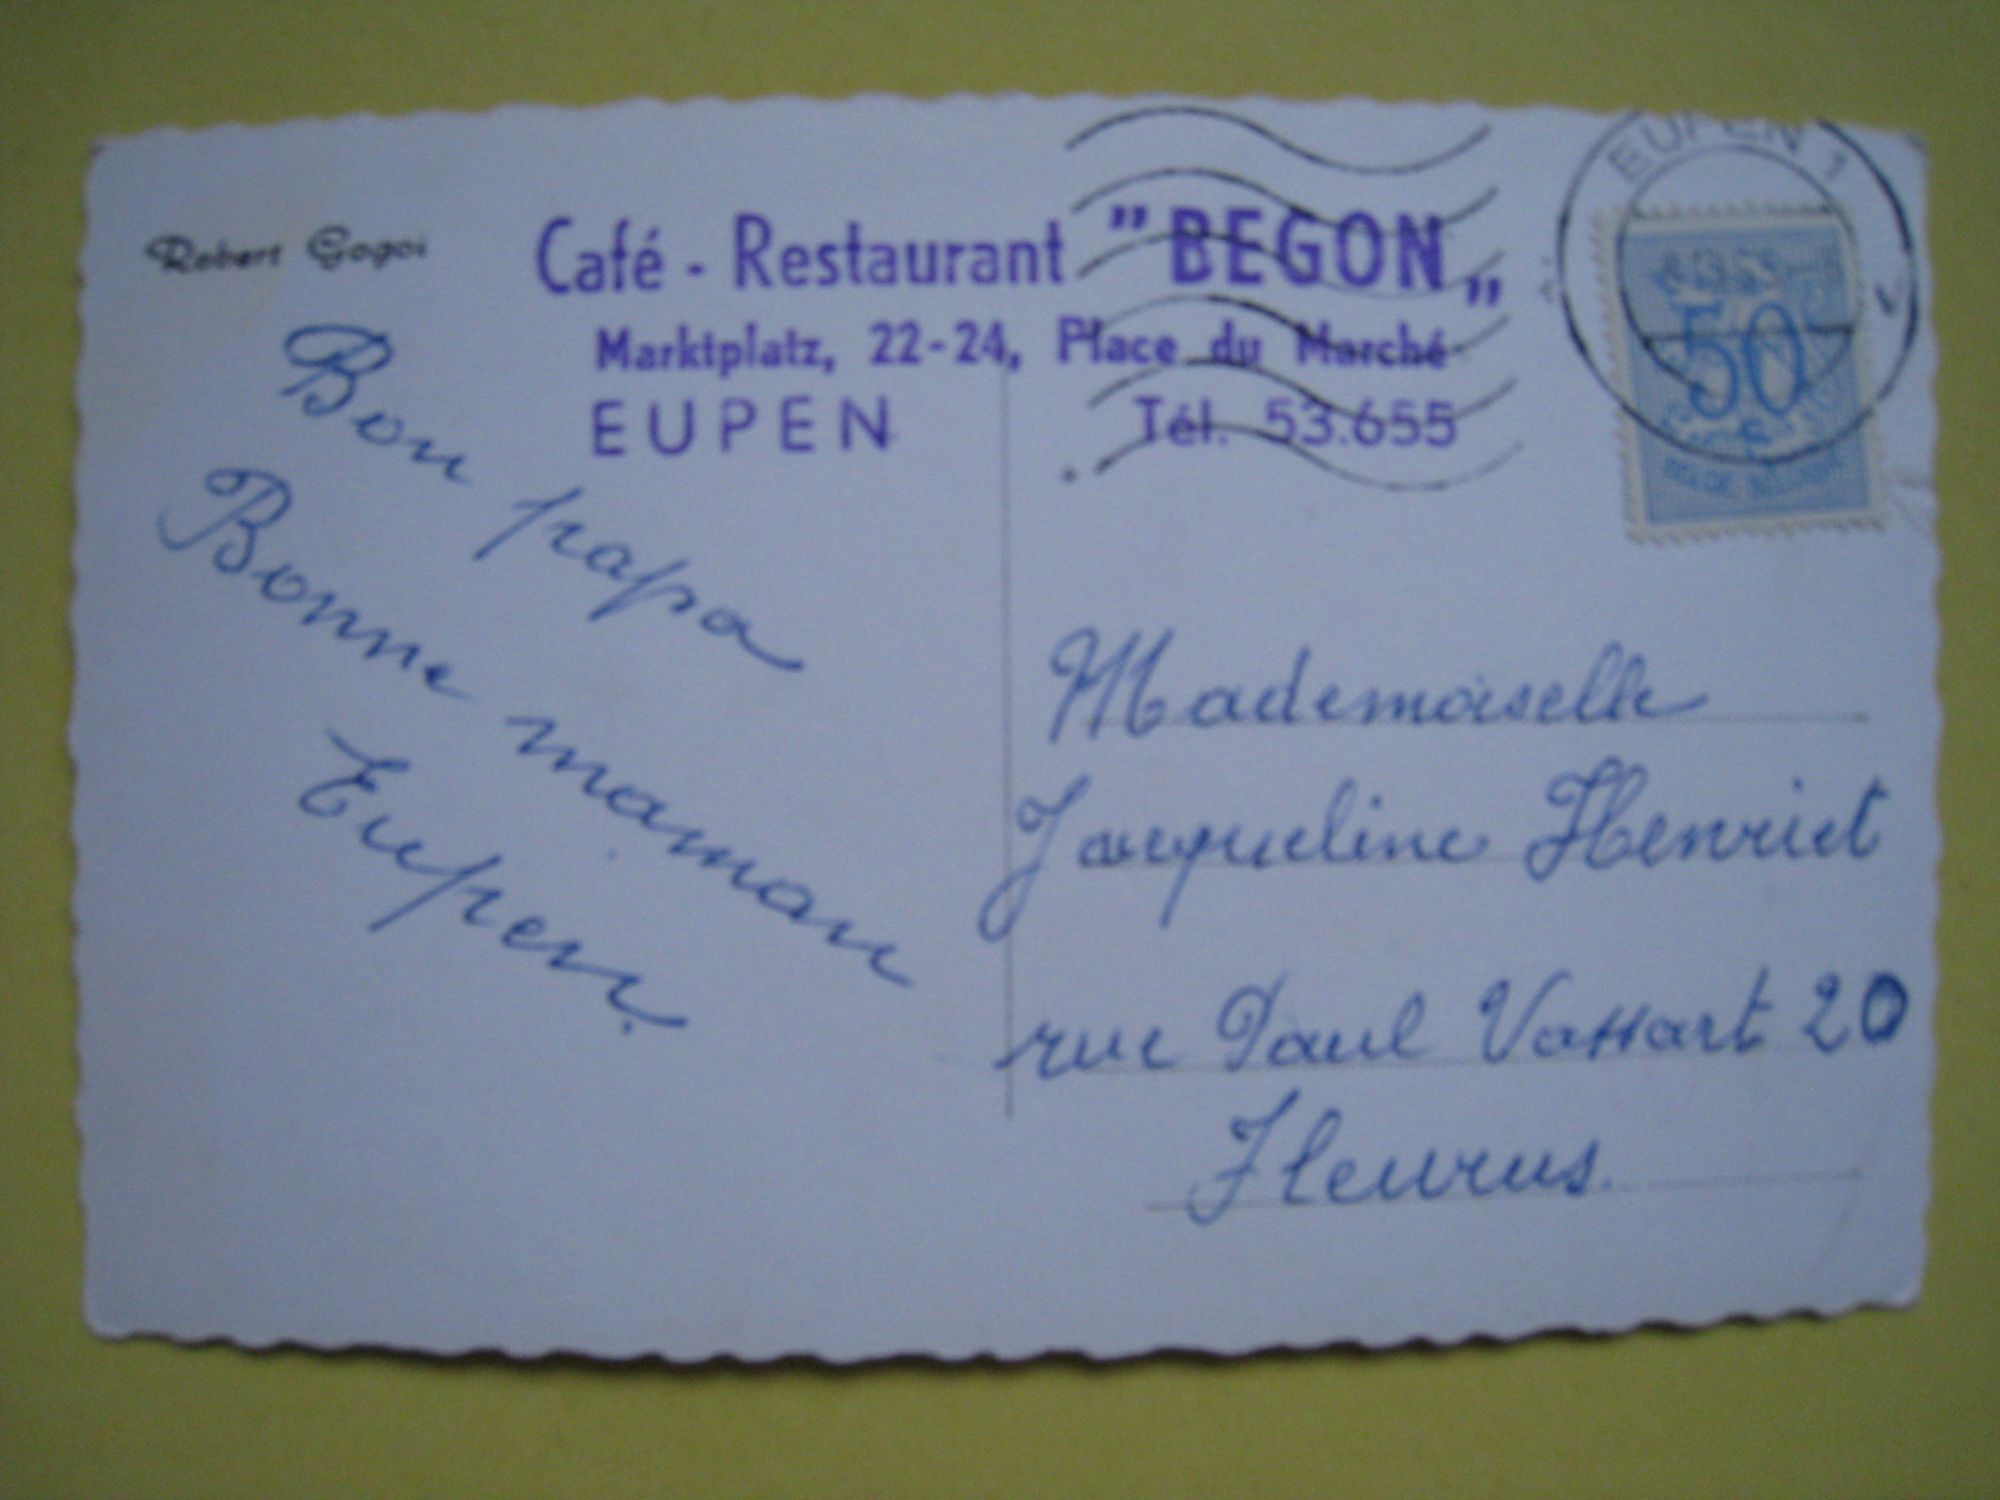 Robert Gogoi
Café - Restaurant "BEGON„
Marktplatz, 22-24, Place du Marché
EUPEN Tél. 53.655
EUPEN 1
50
BELGIE BELGIQUE
Bon papa
Bonne maman
Eupen.
Mademoiselle
Jacqueline Henriet
rue Paul Vassart 20
Fleurus.